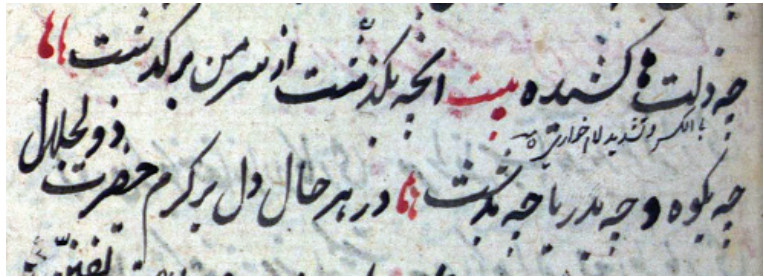 چه ذلت ها کشیده بیت انچه بگذشت از سر من بر گذشت
با الکسر و تشدید لام خواری
چه بکوه و چه بدریا چه بدشت در هر حال دل بر کرم حضرت ذولجلال